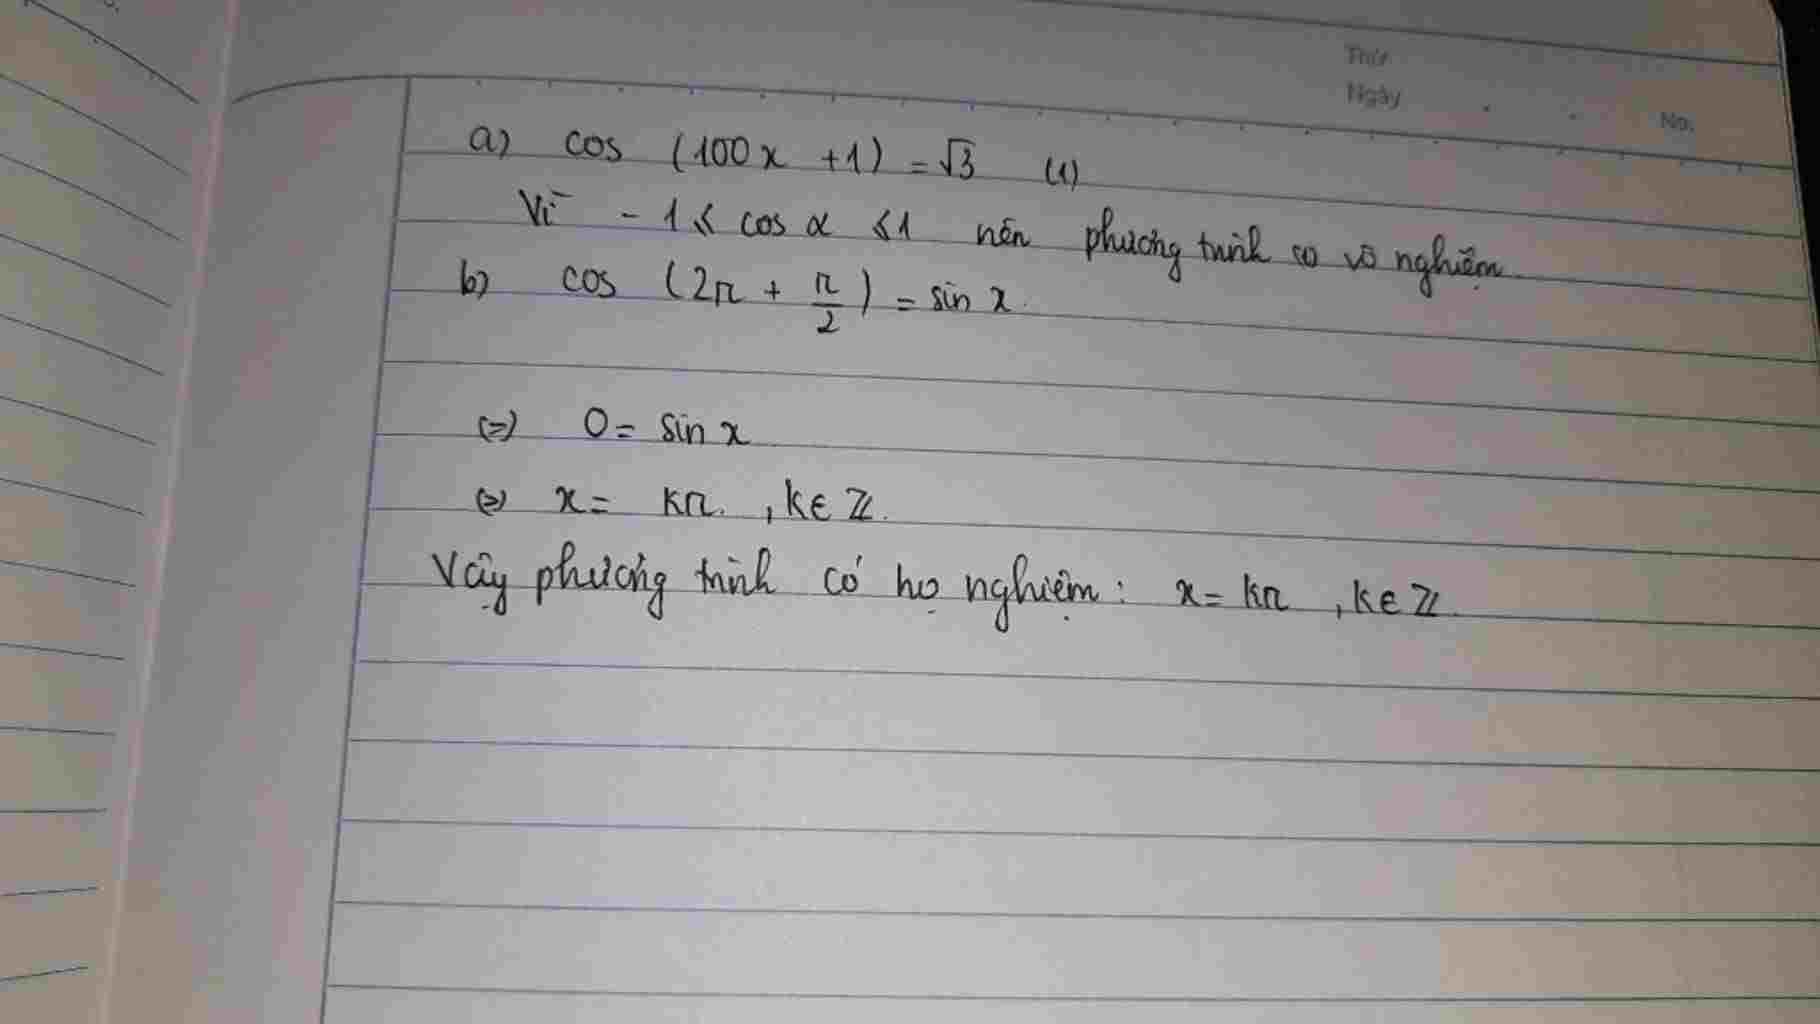 Thứ
Ngày
No.
a) cos (100x + 1) = √3 (1)
Vì - 1 ≤ cos α ≤ 1 nên phương trình (1) vô nghiệm
b) cos (2π + π/2) = sin x.
(=) 0 = sin x
(=) x = kπ. , k ∈ Z.
Vậy phương trình có họ nghiệm : x = kπ , k ∈ Z.